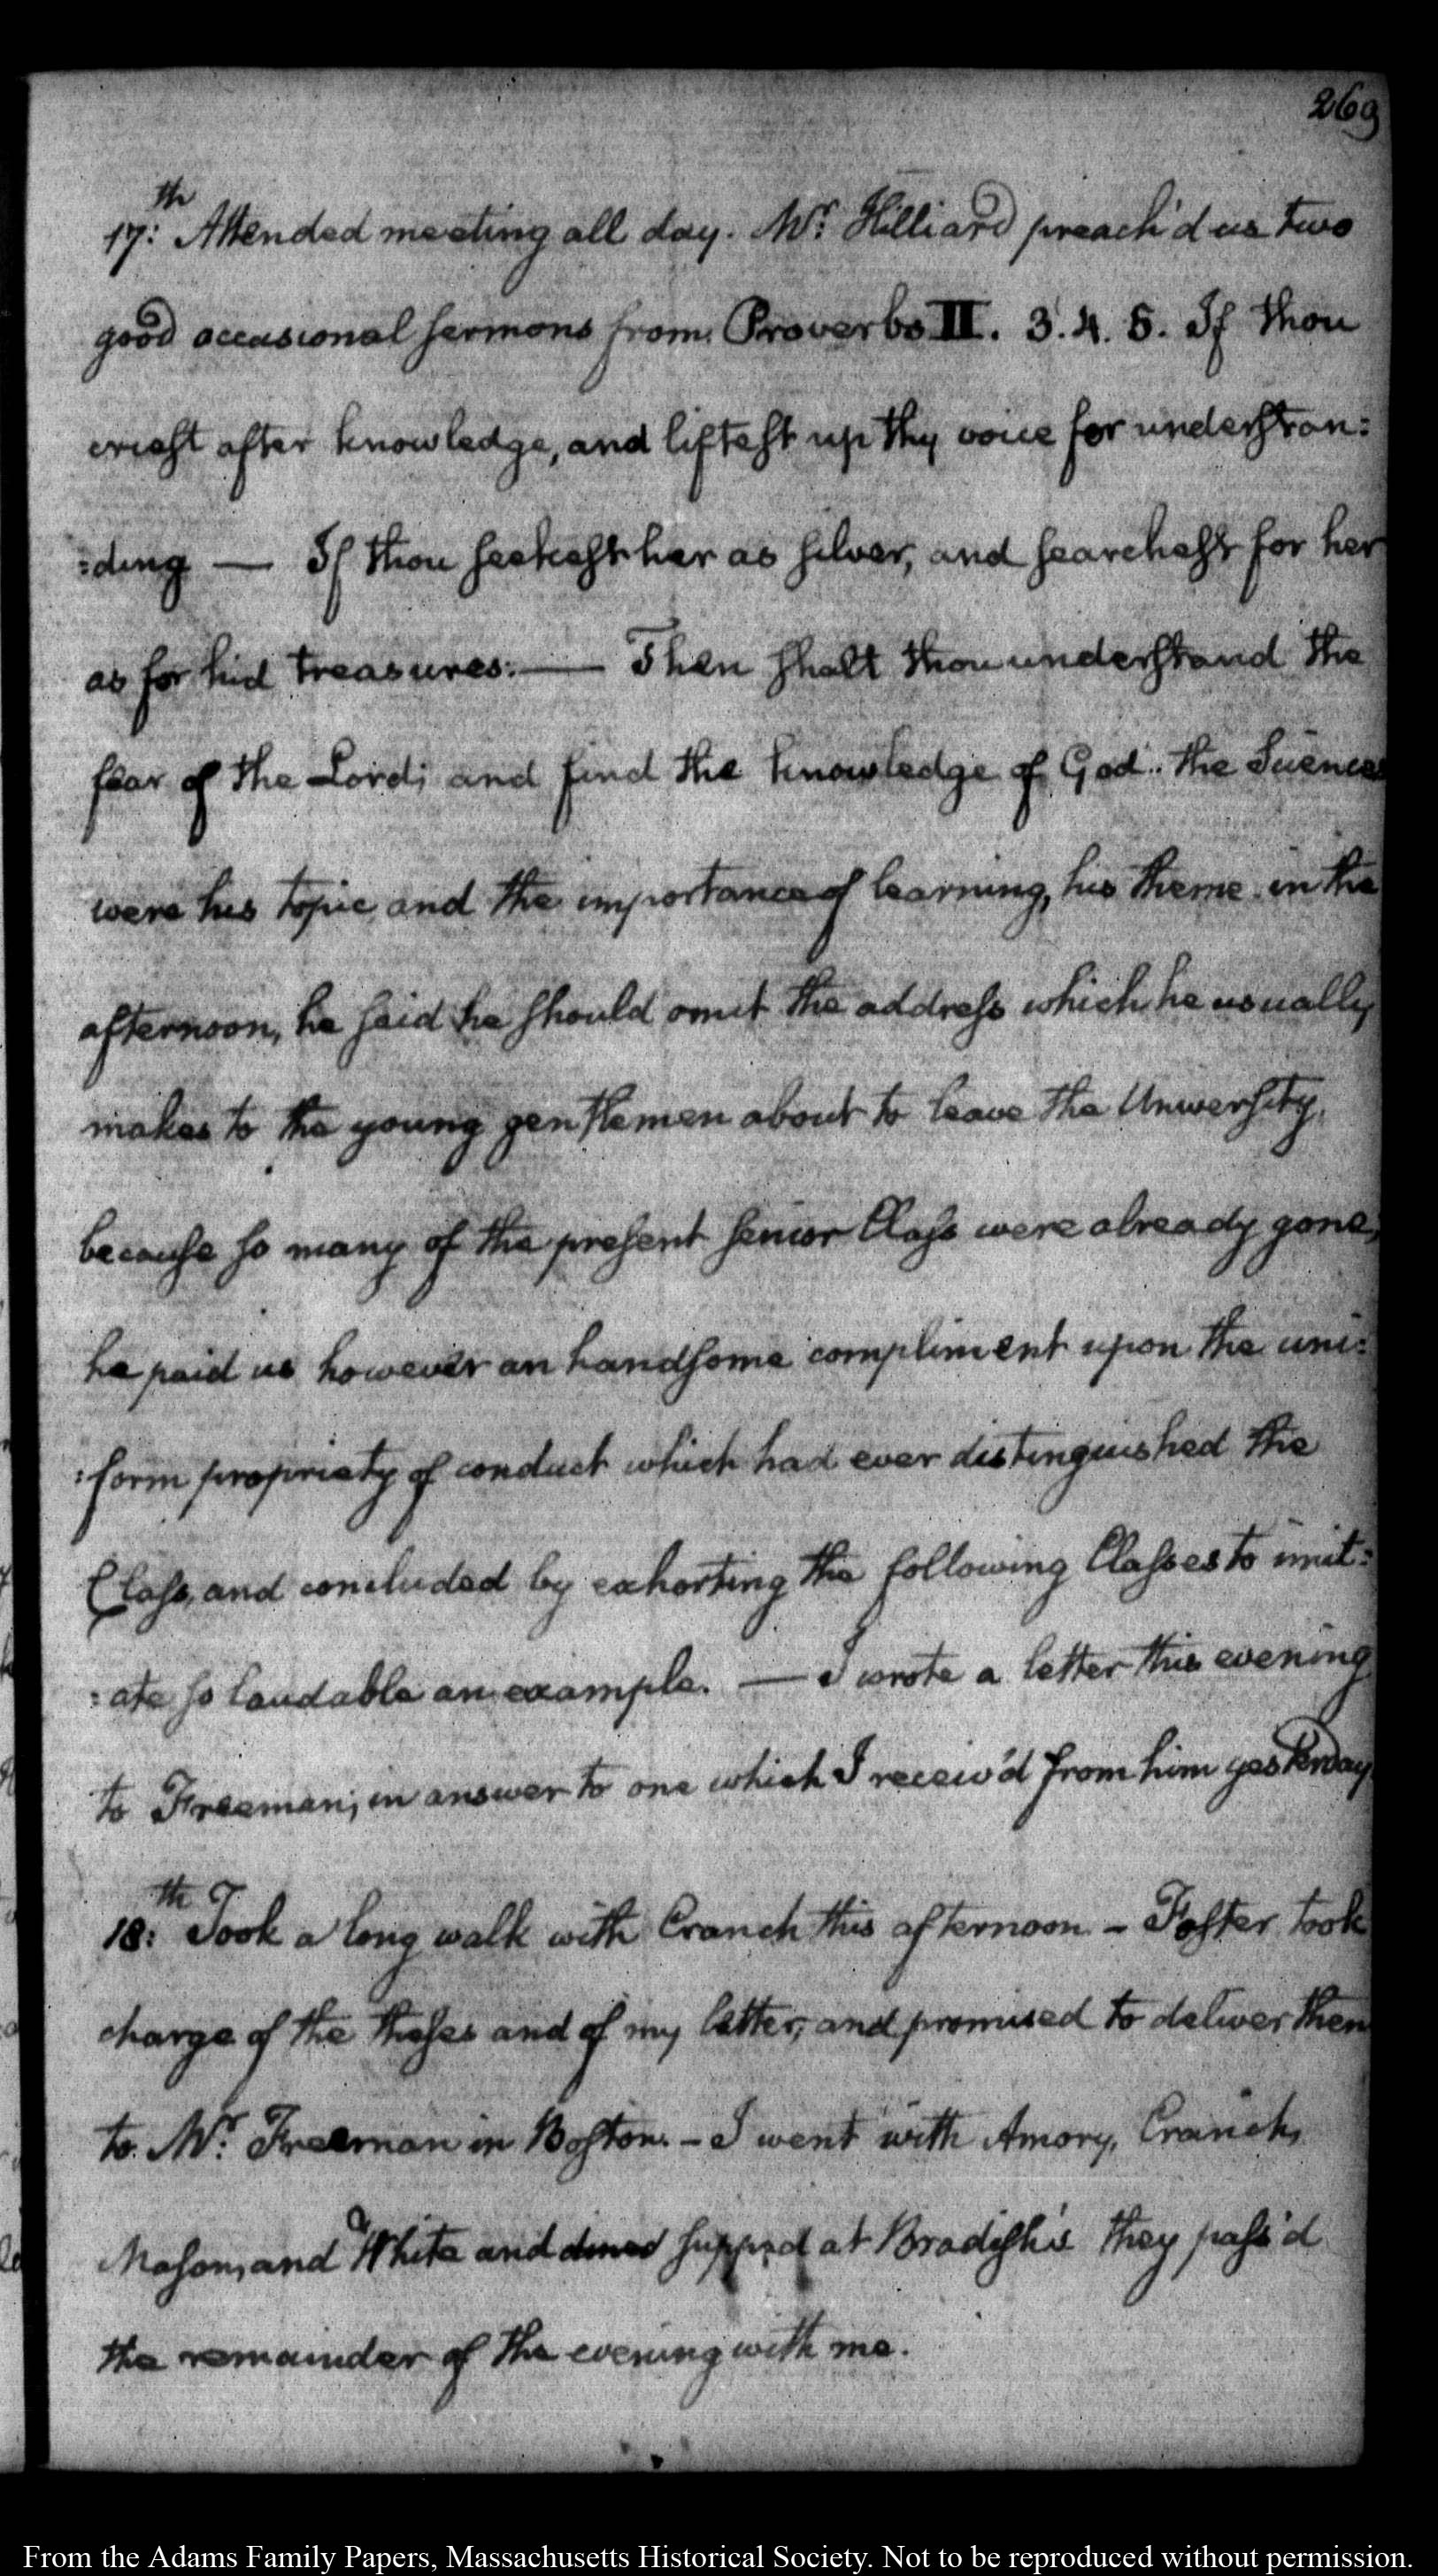 269
17:th Attended meeting all day. Mr: Hilliard preach'd us two
good occasional sermons from Proverbs II. 3. 4. 5. If thou
criest after knowledge, and liftest up thy voice for understan:
:ding — If thou seekest her as silver, and searchest for her
as for hid treasures: — Then shalt thou understand the
fear of the Lord; and find the knowledge of God.. the Sciences
were his topic and the importance of learning, his theme. in the
afternoon, he said he should omit the address which he usually
makes to the young gentlemen about to leave the University,
because so many of the present senior Class were already gone,
he paid us however an handsome compliment upon the uni:
:form propriety of conduct which had ever distinguished the
Class, and concluded by exhorting the following Classes to imit:
:ate so laudable an example. — I wrote a letter this evening
to Freeman; in answer to one which I receiv'd from him yesterday
18:th Took a long walk with Cranch this afternoon. — Foster took
charge of the theses and of my letter, and promised to deliver them
to Mr: Freeman in Boston. — I went with Amory, Cranch,
Mason, and White and dined supped at Bradish's they pass'd
the remainder of the evening with me.
From the Adams Family Papers, Massachusetts Historical Society. Not to be reproduced without permission.